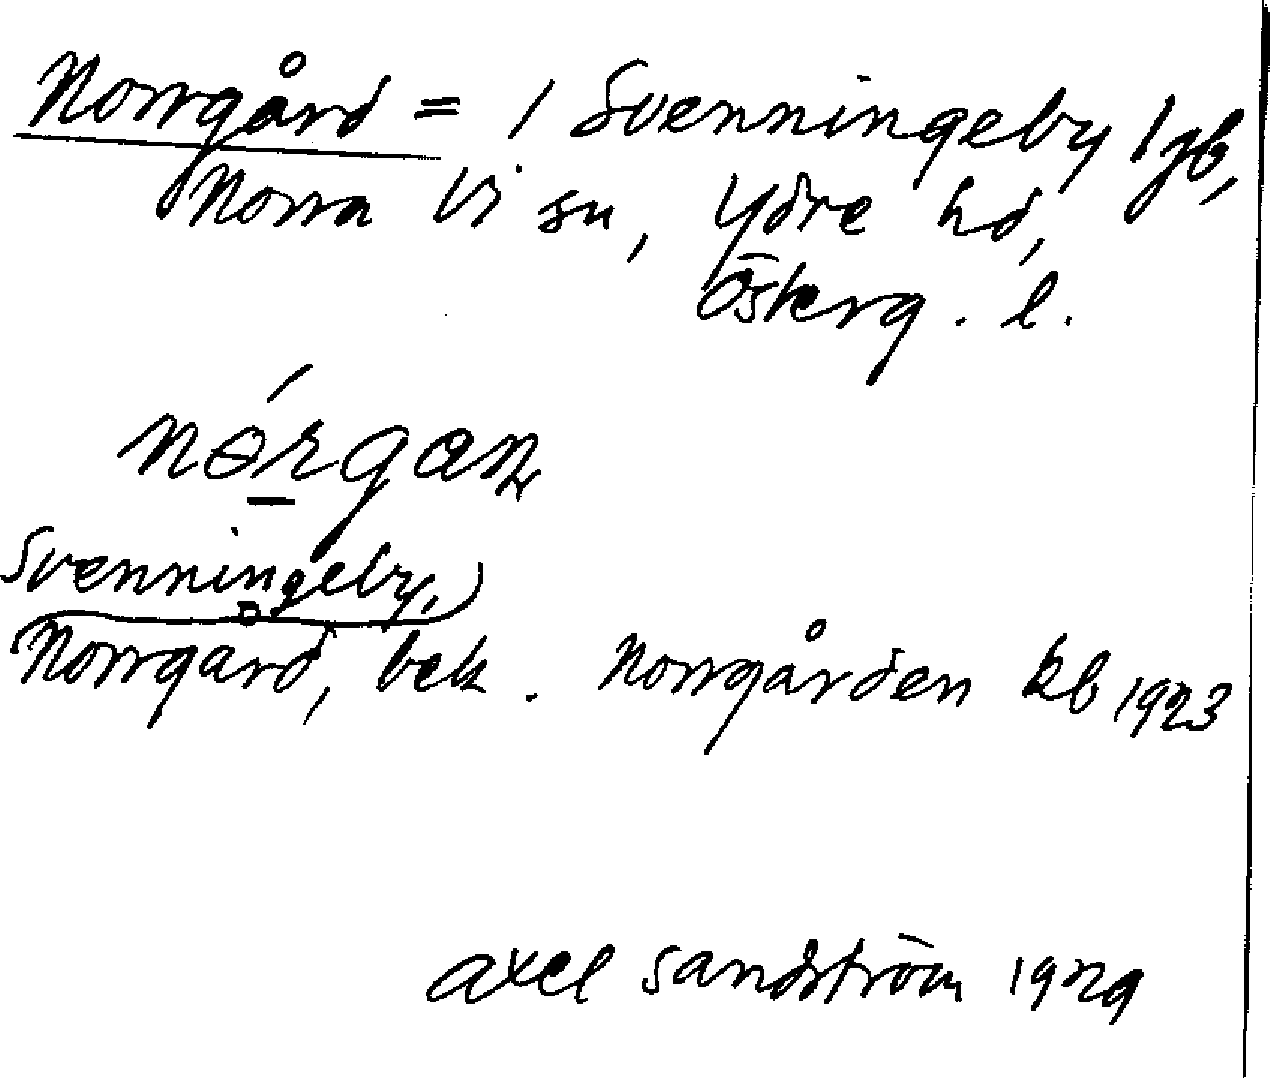 Norrgård = 1 Svenningeby 1 jb,
Norra Vi sn, Ydre hd,
Österg. l.
nórgan
Svenningeby,
Norrgård, bek. Norrgården kb 1923
Axel Sandström 1929